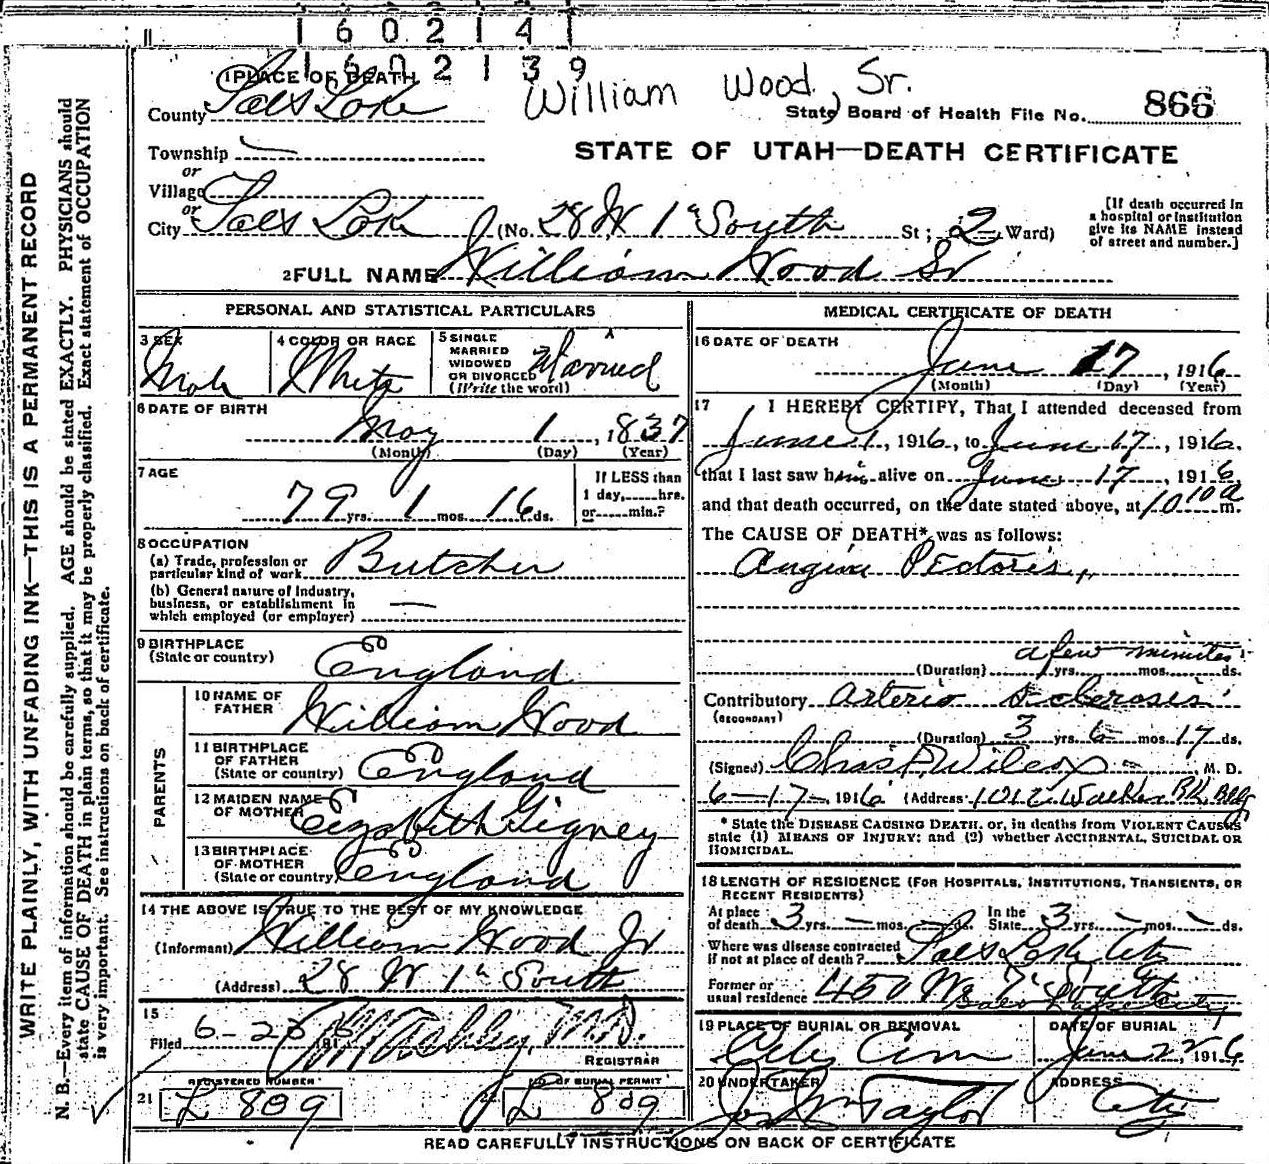 1 6 0 2 1 4 1
1 6 0 2 1 3 9
William Wood, Sr.
1 PLACE OF DEATH
County Salt Lake
State Board of Health File No. 866
STATE OF UTAH—DEATH CERTIFICATE
Township —
or
Village
or
City Salt Lake (No. 28 W 1st South St; 2 Ward)
[If death occurred in a hospital or institution give its NAME instead of street and number.]
2 FULL NAME William Wood Sr
PERSONAL AND STATISTICAL PARTICULARS
3 SEX
Male
4 COLOR OR RACE
White
5 SINGLE
MARRIED
WIDOWED
OR DIVORCED
(Write the word)
Married
6 DATE OF BIRTH
May 1, 1837
(Month) (Day) (Year)
7 AGE
79 yrs. 1 mos. 16 ds.
If LESS than
1 day, hrs.
or min.?
8 OCCUPATION
(a) Trade, profession or
particular kind of work Butcher
(b) General nature of Industry,
business, or establishment in
which employed (or employer) —
9 BIRTHPLACE
(State or country) England
PARENTS
10 NAME OF
FATHER William Wood
11 BIRTHPLACE
OF FATHER
(State or country) England
12 MAIDEN NAME
OF MOTHER Elizabeth Gigney
13 BIRTHPLACE
OF MOTHER
(State or country) England
14 THE ABOVE IS TRUE TO THE BEST OF MY KNOWLEDGE
(Informant) William Wood Jr
(Address) 28 W 1st South
15
Filed 6-2 191 M.D.
REGISTRAR
21
REGISTERED NUMBER
L 809
NO OF BURIAL PERMIT
L 809
MEDICAL CERTIFICATE OF DEATH
16 DATE OF DEATH
June 17, 1916
(Month) (Day) (Year)
17 I HEREBY CERTIFY, That I attended deceased from
June 1, 1916, to June 17, 1916.
that I last saw him alive on June 17, 1916
and that death occurred, on the date stated above, at 10 10 a m.
The CAUSE OF DEATH* was as follows:
Angina Pectoris,
a few minutes
(Duration) yrs. mos. ds.
Contributory Arterio Sclerosis
(SECONDARY)
(Duration) 3 yrs. 6 mos. 17 ds.
(Signed) Chas F Wilcox M. D.
6-17-1916 (Address 1012 Walker Bk Bldg
* State the DISEASE CAUSING DEATH, or, in deaths from VIOLENT CAUSES
state (1) MEANS OF INJURY; and (2) whether ACCIDENTAL, SUICIDAL OR
HOMICIDAL.
18 LENGTH OF RESIDENCE (FOR HOSPITALS, INSTITUTIONS, TRANSIENTS, OR
RECENT RESIDENTS)
At place
of death 3 yrs. — mos. — ds. In the
State 3 yrs. — mos. — ds.
Where was disease contracted
if not at place of death? Salt Lake City
Former or
usual residence 450 W 7th South
Salt Lake City
19 PLACE OF BURIAL OR REMOVAL
City Cem
DATE OF BURIAL
June 22 1916
20 UNDERTAKER
Jos Wm Taylor
ADDRESS
City
READ CAREFULLY INSTRUCTIONS ON BACK OF CERTIFICATE
WRITE PLAINLY, WITH UNFADING INK—THIS IS A PERMANENT RECORD
N. B.—Every item of information should be carefully supplied. AGE should be stated EXACTLY. PHYSICIANS should
state CAUSE OF DEATH in plain terms, so that it may be properly classified. Exact statement of OCCUPATION
is very important. See instructions on back of certificate.